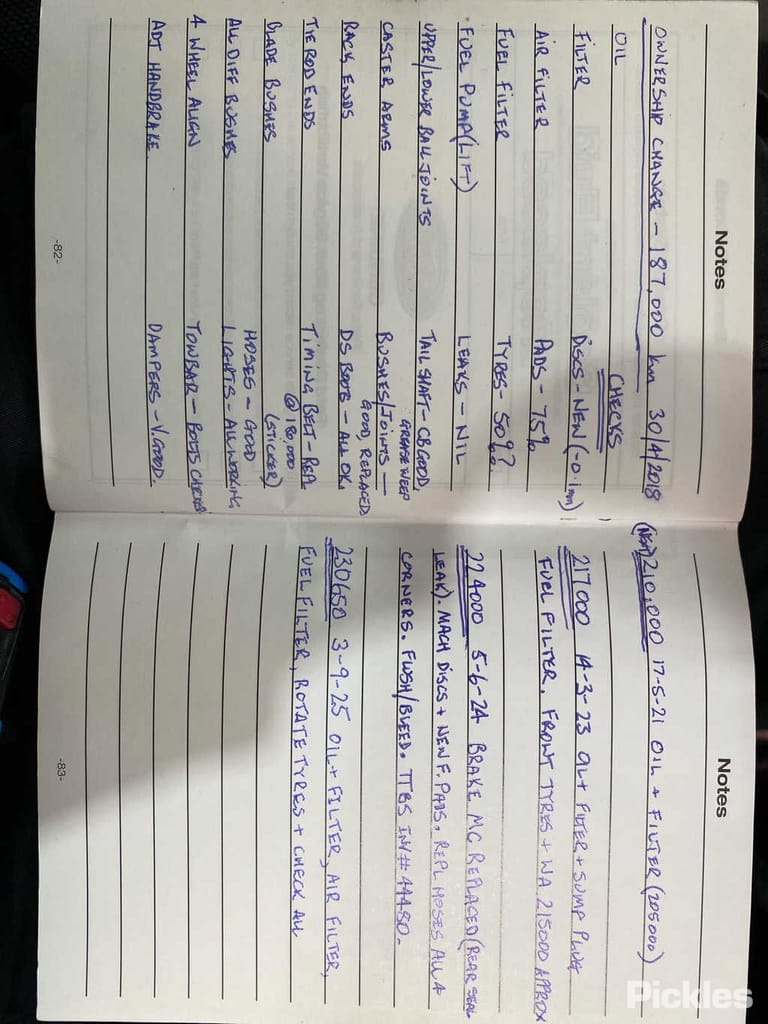 Notes
OWNERSHIP CHANGE - 187,000 km 30/4/2018
OIL CHECKS
FILTER DISCS - NEW (-0.1mm)
AIR FILTER PADS - 75%
FUEL FILTER TYRES - 50%?
FUEL PUMP (LIFT) LEAKS - NIL
UPPER/LOWER BALL JOINTS TAIL SHAFT - CB GOOD,
GREASE WEEP
CASTER ARMS BUSHES/JOINTS -
GOOD, REPLACED
RACK ENDS DS BOOTS - ALL OK.
TIE ROD ENDS TIMING BELT - REPL
@ 180,000
(STICKER)
BLADE BUSHES
HOSES - GOOD
ALL DIFF BUSHES LIGHTS - ALL WORKING
4 WHEEL ALIGN TOWBAR - BOLTS CHECKED
ADJ HANDBRAKE. DAMPERS - V. GOOD.
-82-
Notes
(NEXT) 210,000 17-5-21 OIL + FILTER (205000)
217000 14-3-23 OIL + FILTER + SUMP PLUG
FUEL FILTER. FRONT TYRES + WA 215000 APPROX
224000 5-6-24 BRAKE MC REPLACED (REAR SEAL
LEAK). MACH DISCS + NEW F. PADS. REPL HOSES ALL 4
CORNERS. FLUSH/BLEED. TTBS INV # 44480.
230650 3-9-25 OIL + FILTER, AIR FILTER,
FUEL FILTER, ROTATE TYRES + CHECK ALL
-83-
Pickles